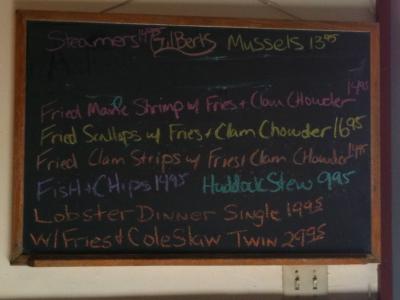 Steamers 14.95 Gilberts Mussels 13.95
Fried Maine Shrimp w/ Fries + Clam Chowder 14.95
Fried Scallops w/ Fries + Clam Chowder 16.95
Fried Clam Strips w/ Fries + Clam Chowder 14.95
Fish + Chips 14.95 Haddock Stew 9.95
Lobster Dinner Single 19.95
w/ Fries + Cole Slaw Twin 29.95